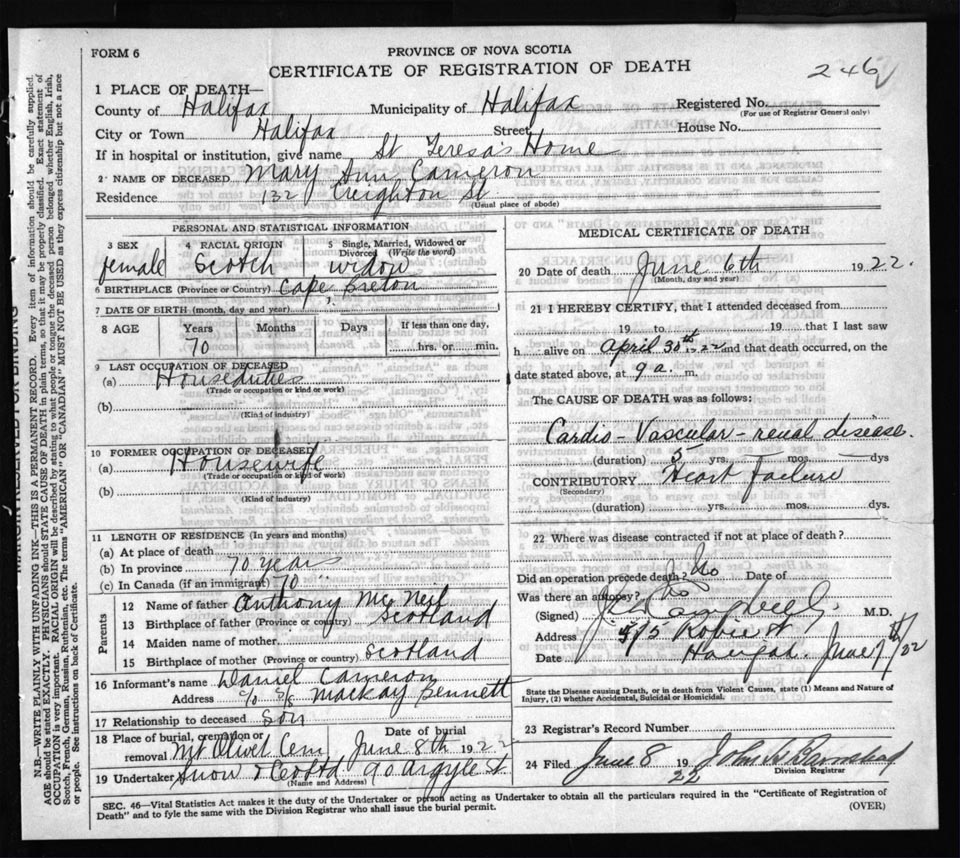 FORM 6
PROVINCE OF NOVA SCOTIA
CERTIFICATE OF REGISTRATION OF DEATH
246
1 PLACE OF DEATH—
County of Halifax Municipality of Halifax Registered No.
(For use of Registrar General only)
City or Town Halifax Street House No.
If in hospital or institution, give name St Teresa's Home
2 NAME OF DECEASED Mary Ann Cameron
Residence 132 Creighton St
(Usual place of abode)
PERSONAL AND STATISTICAL INFORMATION
3 SEX 4 RACIAL ORIGIN 5 Single, Married, Widowed or Divorced (Write the word)
female Scotch widow
6 BIRTHPLACE (Province or Country) Cape Breton
7 DATE OF BIRTH (month, day and year)
8 AGE Years Months Days If less than one day,
70 hrs. or min.
9 LAST OCCUPATION OF DECEASED
(a) Houseduties
(Trade or occupation or kind or work)
(b)
(Kind of industry)
10 FORMER OCCUPATION OF DECEASED
(a) Housewife
(Trade or occupation or kind of work)
(b)
(Kind of industry)
11 LENGTH OF RESIDENCE (In years and months)
(a) At place of death
(b) In province 70 years
(c) In Canada (if an immigrant) 70 "
Parents
12 Name of father Anthony McNeil
13 Birthplace of father (Province or country) Scotland
14 Maiden name of mother
15 Birthplace of mother (Province or country) Scotland
16 Informant's name Daniel Cameron
Address c/o S/S Mackay Bennett
17 Relationship to deceased son
18 Place of burial, cremation or removal Mt Olivet Cem Date of burial June 8th 1922
19 Undertaker Snow & Co Ltd 90 Argyle St
(Name and Address)
MEDICAL CERTIFICATE OF DEATH
20 Date of death June 6th 1922.
(Month, day and year)
21 I HEREBY CERTIFY, that I attended deceased from
19 to 19 that I last saw
h alive on April 30th 22 and that death occurred, on the
date stated above, at 9 a. m.
The CAUSE OF DEATH was as follows:
Cardio-Vascular-renal disease.
(duration) 5 yrs. mos. dys
CONTRIBUTORY Heart failure
(Secondary)
(duration) yrs. mos. dys.
22 Where was disease contracted if not at place of death?
Did an operation precede death? No Date of
Was there an autopsy? No
(Signed) M.D.
Address Robie St
Date Halifax June 7th/22
State the Disease causing Death, or in death from Violent Causes, state (1) Means and Nature of
Injury, (2) whether Accidental, Suicidal or Homicidal.
23 Registrar's Record Number
24 Filed June 8 1922 John
Division Registrar
SEC. 46—Vital Statistics Act makes it the duty of the Undertaker or person acting as Undertaker to obtain all the particulars required in the "Certificate of Registration of
Death" and to fyle the same with the Division Registrar who shall issue the burial permit. (OVER)
MARGIN RESERVED FOR BINDING
N.B.—WRITE PLAINLY WITH UNFADING INK—THIS IS A PERMANENT RECORD. Every item of information should be carefully supplied.
AGE should be stated EXACTLY. PHYSICIANS should STATE CAUSE OF DEATH in plain terms, so that it may be properly classified. Exact statement of
OCCUPATION is very important. RACIAL ORIGIN will be described by stating to what people or tongue the deceased person belonged whether English, Irish,
Scotch, French, German, Russian, Ruthenian, etc. The terms "AMERICAN" OR "CANADIAN" MUST NOT BE USED as they express citizenship but not a race
or people. See instructions on back of Certificate.